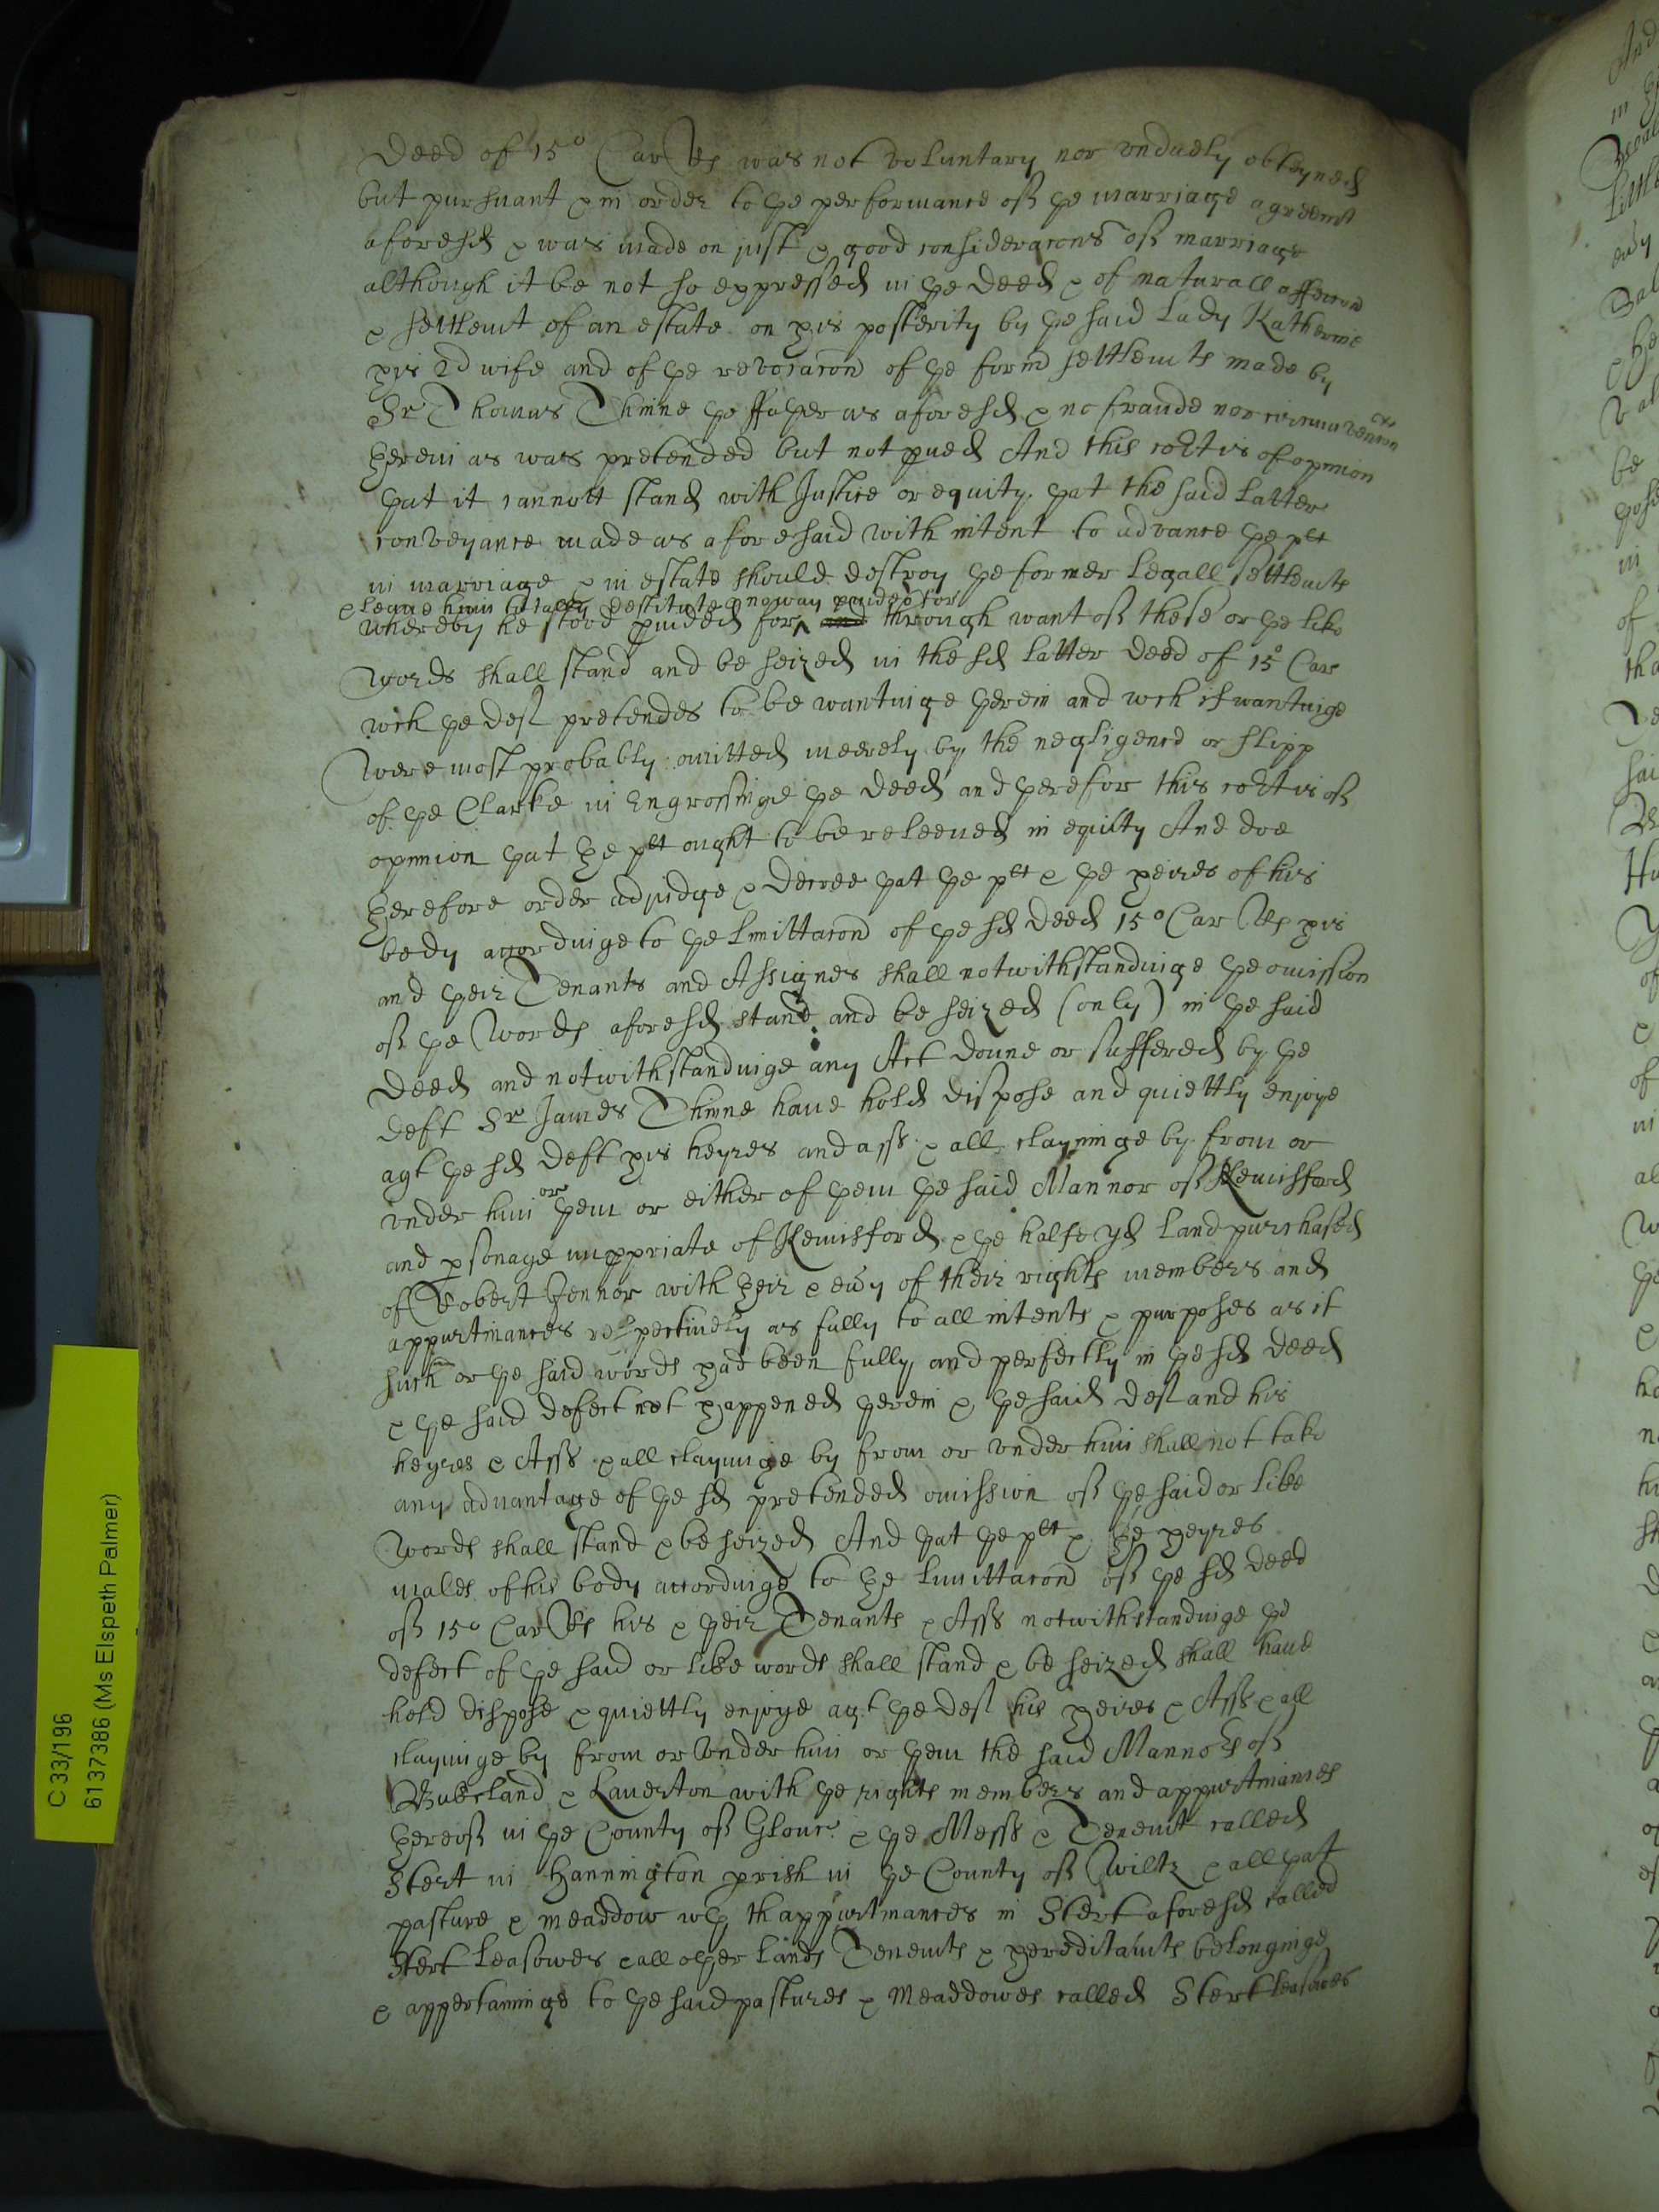 Deed of 15° Car Rs was not voluntary nor unduely obteyned
but pursuant & in order to the performance of the marriage agreemt
aforesd & was made on just & good consideracons of marriage
although it be not so expressed in the Deed & of naturall affeccon
& settlemt of an estate on his posterity by the said Lady Katherine
his 2d wife and of the revocacon of the form settlemts made by
Sr Thomas Thinne the ffather as aforesd & no fraude nor circumvencon
therein as was pretended but not pued And this Cort is of opinion
that it cannott stand with Justice or equity that the said latter
conveyance made as aforesaid with intent to advance the plt
in marriage & in estate should destroy the former legall settlemts
& leave him totally destitute & noway puided for
whereby he stood puided for through want of these or the like
Words shall stand and be seized in the sd latter Deed of 15° Car
wch the deft pretendes to be wantinge therein and wch if wantinge
Were most probably omitted meerely by the negligence or slipp
of the Clarke in Engrossinge the Deed and therefor this Cort is of
opinion that the plt ought to be releeved in equity And doe
therefore order adjudge & Decree that the plt & the heires of his
body accordinge to the limittacon of the sd Deed 15° Car Rs his
and their Tenants and Assignes shall notwithstandinge the omission
of the Words aforesd stand and be seized (only) in the said
Deed and notwithstandinge any Act donne or suffered by the
Deft Sr James Thinne have hold dispose and quiettly enjoye
agt the sd Deft his heyres and asss & all clayminge by from or
under him or them or either of them the said Mannor of Kemisford
and psonage imppriate of Kemisford & the halfe yd land purchased
of Robert Jennor with their & evy of their rights members and
appurtinances respectively as fully to all intents & purposes as if
such or the said words had been fully and perfectly in the sd Deed
& the said defect not happened therein & the said deft and his
heyres & Asss & all clayminge by from or under him shall not take
any advantage of the sd pretended omission of the said or like
Words shall stand & be seized And that the plt & the heyres
males of his body accordinge to the limittacon of the sd Deed
of 15° Car Rs his & their Tenants & Asss notwithstandinge the
defect of the said or like words shall stand & be seized shall have
hold dispose & quiettly enjoye agt the deft his heires & Asss & all
clayminge by from or under him or them the said Mannors of
Buckland & Laverton with the rights members and appurtinances
thereof in the County of Glouc & the Messs & Tenemt called
Stert in Hannington prish in the County of Wiltz & all that
pasture & meaddow wth thappurtinances in Stert aforesd called
Stert Leasowes & all other lands Tenemts & hereditamts belonginge
& appertaininge to the said pastures & Meaddowes called Stert leasowes
C 33/196
6137386 (Ms Elspeth Palmer)